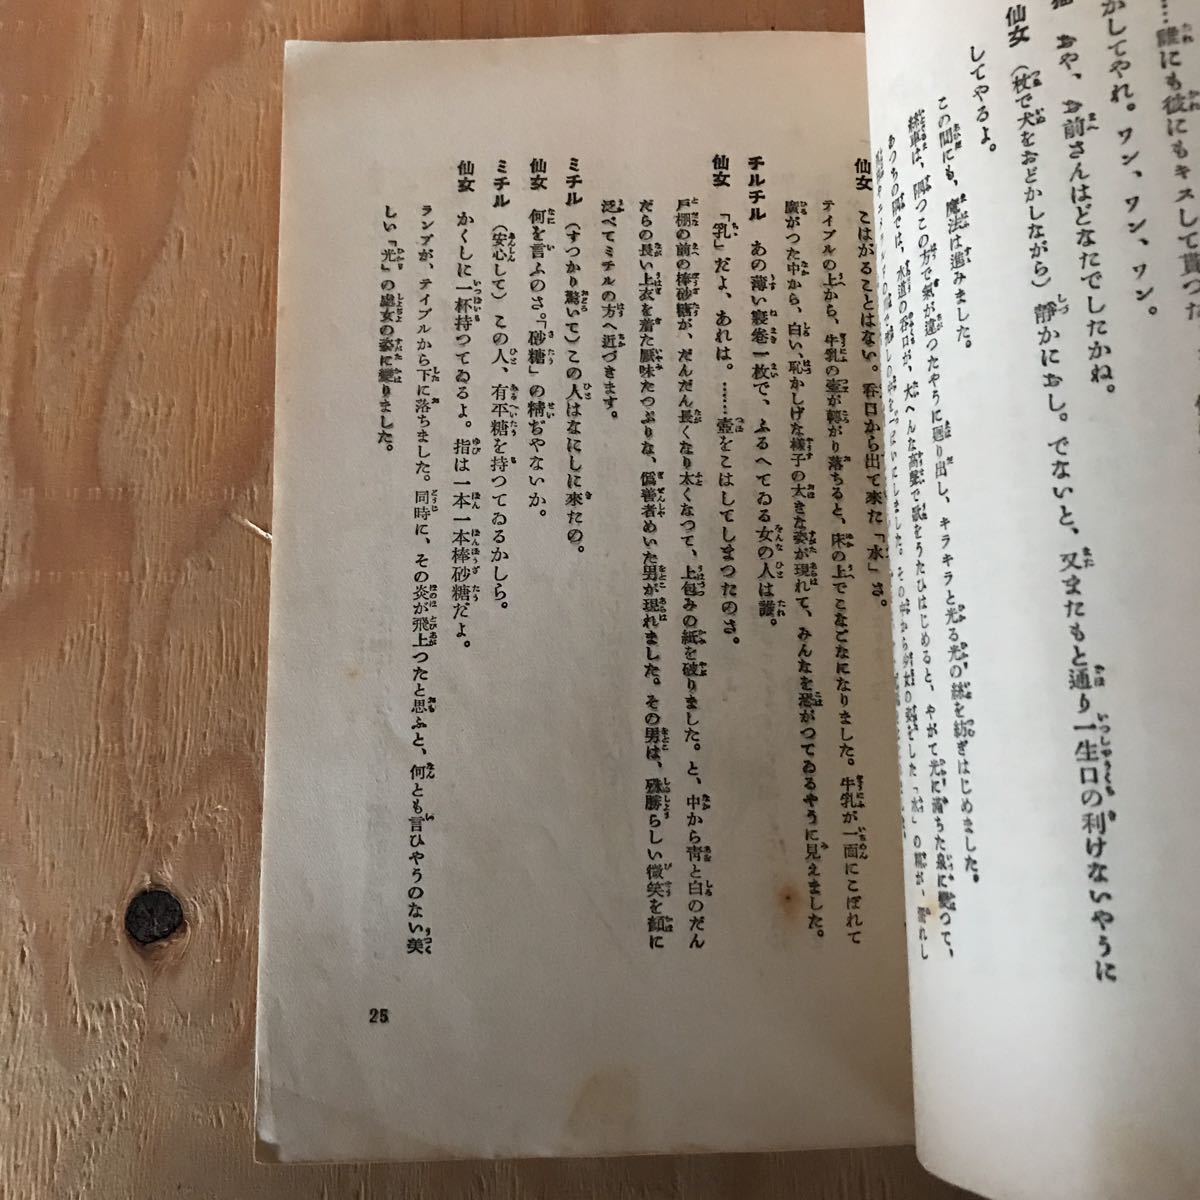 ……誰にも彼にもキスして貰つた
かしてやれ。ワン、ワン、ワン。
おや、お前さんはどなたでしたかね。
仙女 (杖で犬をおどかしながら) 靜かにおし。でないと、又またもと通り一生口の利けないやうに
してやるよ。
この間にも、魔法は進みました。
絲車は、隅つこの方で氣が違つたやうに廻り出し、キラキラと光る光の絲を紡ぎはじめました。
あつちの隅では、水道の呑口が、大へんな高聲で歌をうたひはじめると、やがて光に滿ちた泉に變つて、
仙女 こはがることはない。呑口から出て來た「水」さ。
テイブルの上から、牛乳の壺が轉がり落ちると、床の上でこなごなになりました。牛乳が一面にこぼれて
廣がつた中から、白い、恥かしげな樣子の大きな姿が現れて、みんなを恐がつてゐるやうに見えました。
チルチル あの薄い寢卷一枚で、ふるへてゐる女の人は誰。
仙女 「乳」だよ、あれは。……壺をこはしてしまつたのさ。
戸棚の前の棒砂糖が、だんだん長くなり太くなつて、上包みの紙を破りました。と、中から靑と白のだん
だらの長い上衣を着た厭味たつぷりな、僞善者めいた男が現れました。その男は、殊勝らしい微笑を顏に
泛べてミチルの方へ近づきます。
ミチル (すつかり驚いて)この人はなにしに來たの。
仙女 何を言ふのさ。「砂糖」の精ぢやないか。
ミチル (安心して) この人、有平糖を持つてゐるかしら。
仙女 かくしに一杯持つてゐるよ。指は一本一本棒砂糖だよ。
ランプが、テイブルから下に落ちました。同時に、その炎が飛上つたと思ふと、何とも言ひやうのない美
しい「光」の處女の姿に變りました。
25